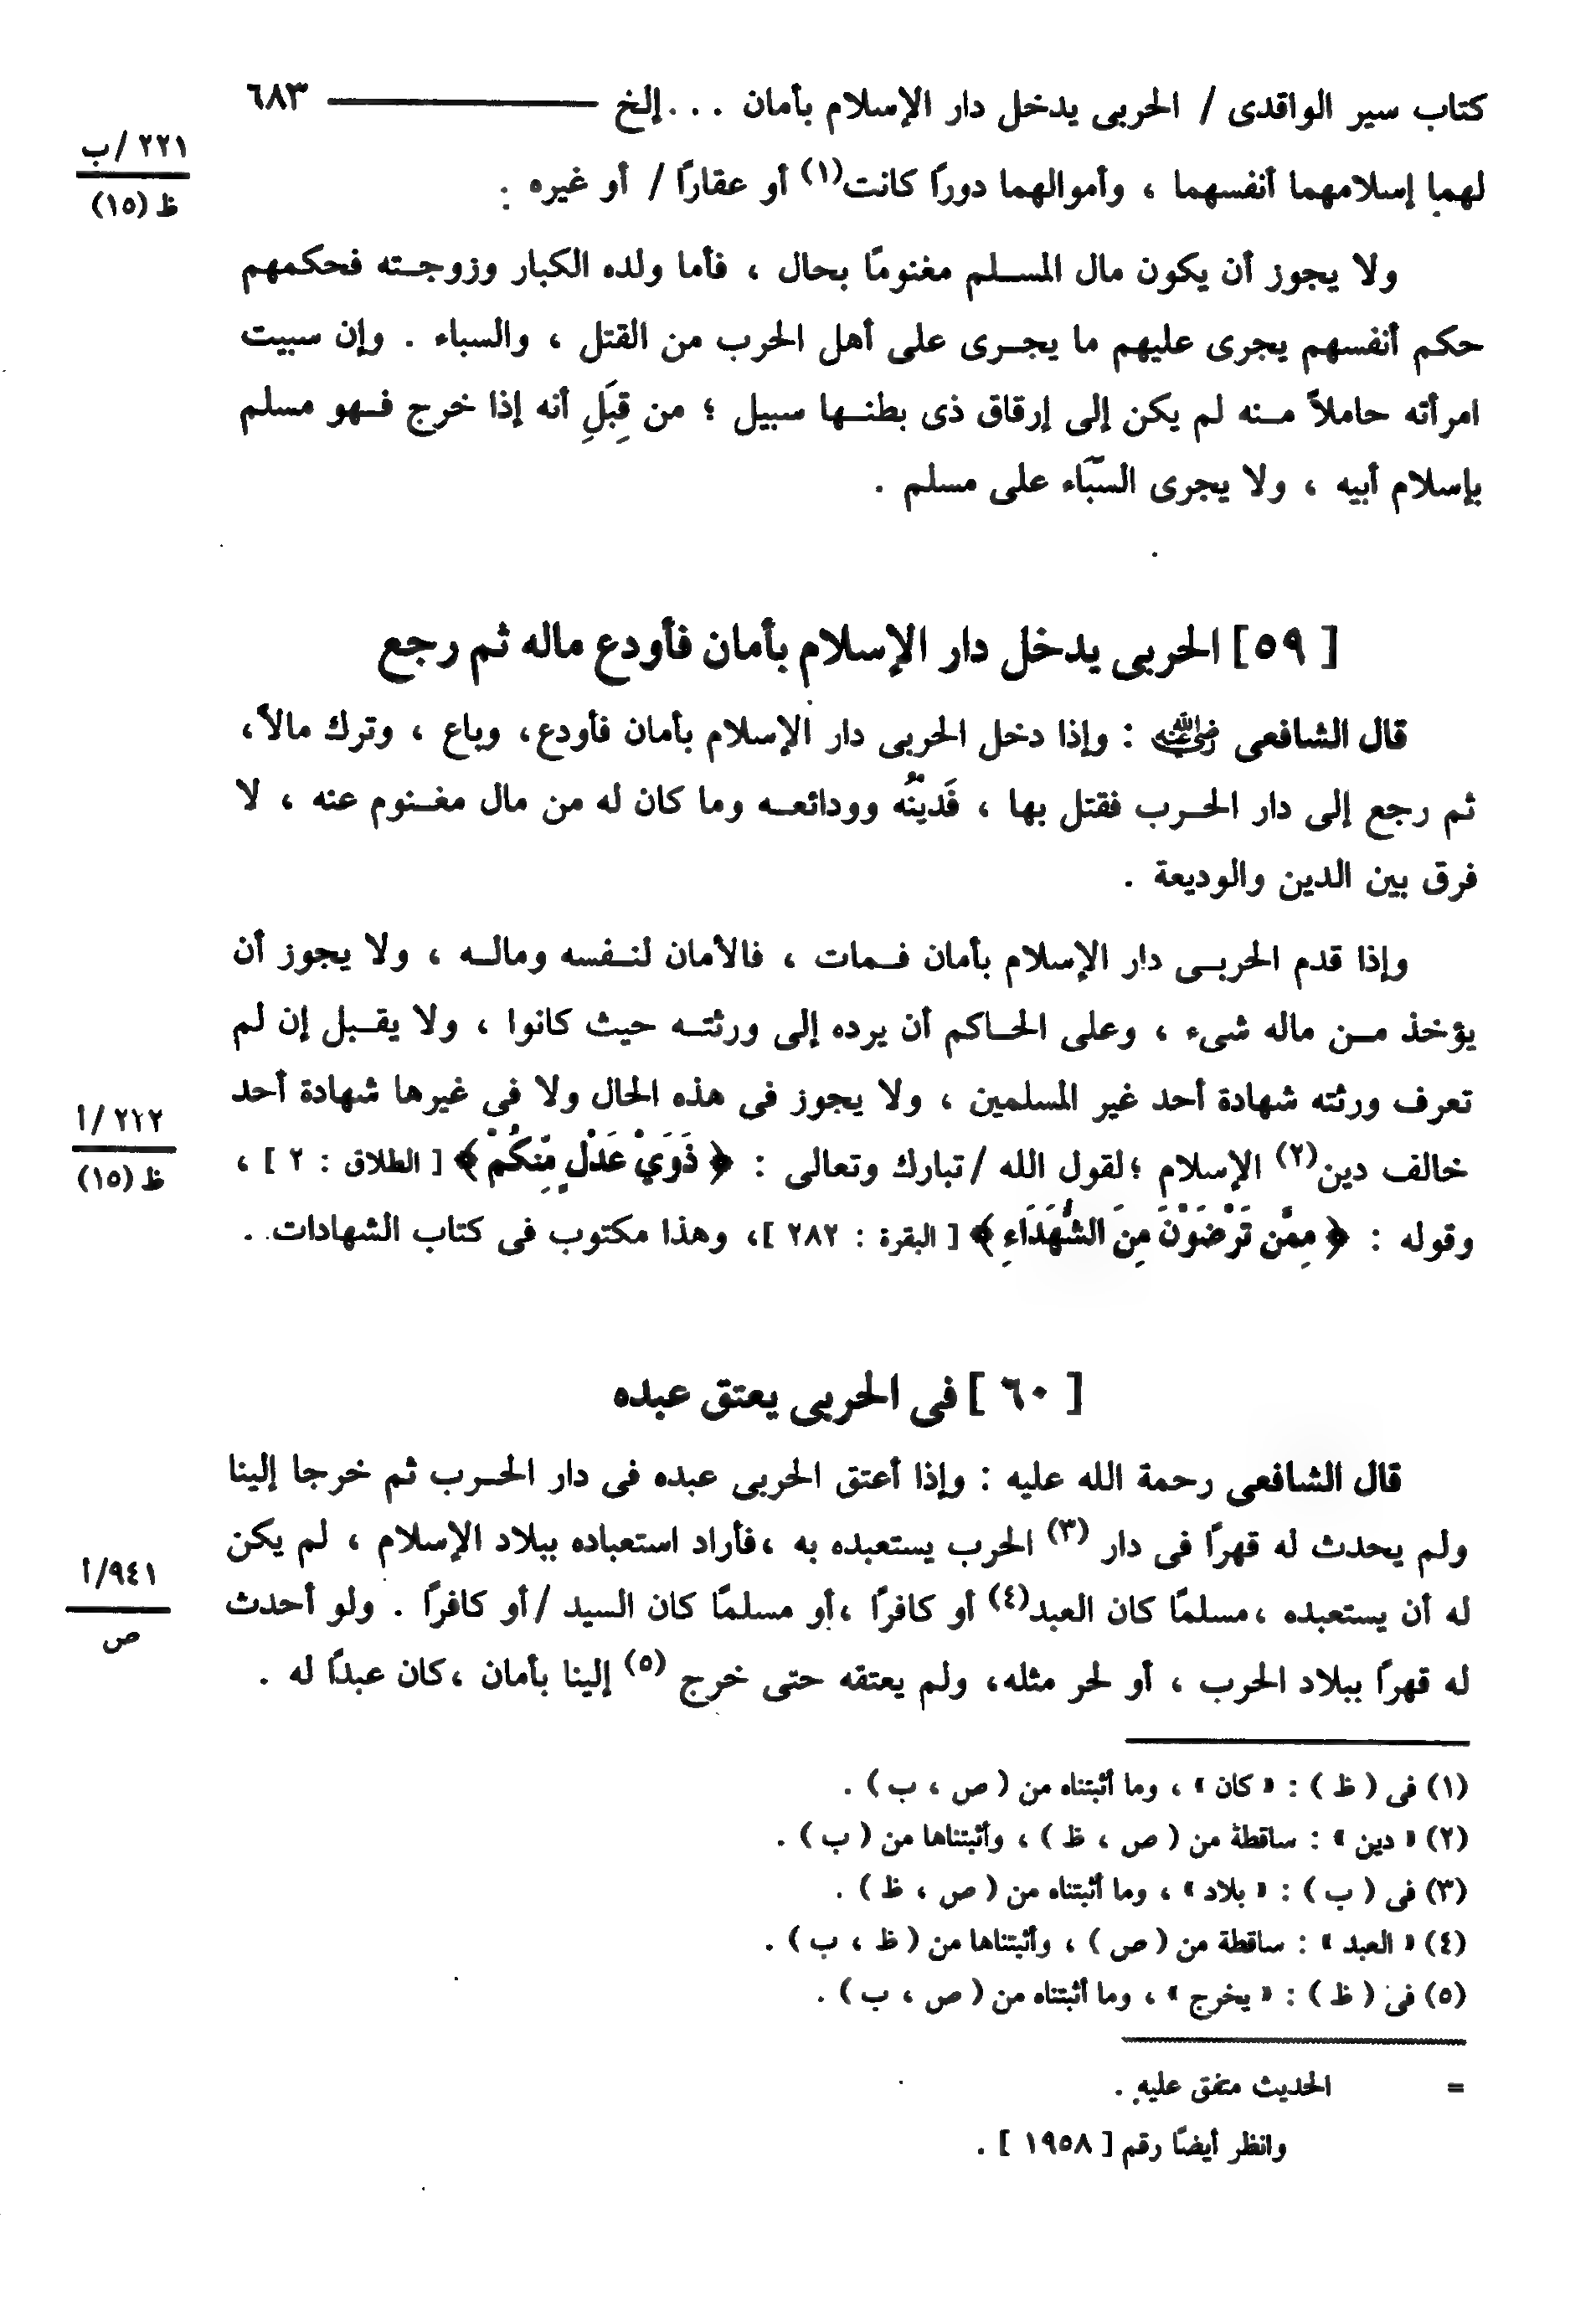 كتاب سير الواقدى / الحربى يدخل دار الإسلام بأمان . . . إلخ ـــــــــ ٦٨٣
٢٢١ /ب
ظ (١٥)
لهما إسلامهما أنفسهما ، وأموالهما دورًا كانت(١) أو عقارًا / أو غيره .
ولا يجوز أن يكون مال المسلم مغنومًا بحال ، فأما ولده الكبار وزوجته فحكمهم
حكم أنفسهم يجرى عليهم ما يجرى على أهل الحرب من القتل ، والسباء . وإن سبيت
امرأته حاملاً منه لم يكن إلى إرقاق ذى بطنها سبيل ؛ من قِبَلِ أنه إذا خرج فهو مسلم
بإسلام أبيه ، ولا يجرى السِّبَاء على مسلم .
[ ٥٩] الحربى يدخل دار الإسلام بأمان فأودع ماله ثم رجع
قال الشافعى رضي الله عنه : وإذا دخل الحربى دار الإسلام بأمان فأودع، وباع ، وترك مالاً،
ثم رجع إلى دار الحرب فقتل بها ، فَديْنُه وودائعه وما كان له من مال مغنوم عنه ، لا
فرق بين الدين والوديعة .
وإذا قدم الحربى دار الإسلام بأمان فمات ، فالأمان لنفسه وماله ، ولا يجوز أن
يؤخذ من ماله شىء ، وعلى الحاكم أن يرده إلى ورثته حيث كانوا ، ولا يقبل إن لم
تعرف ورثته شهادة أحد غير المسلمين ، ولا يجوز فى هذه الحال ولا فى غيرها شهادة أحد
٢١٢ /أ
ظ (١٥)
خالف دين(٢) الإسلام ؛لقول الله /تبارك وتعالى : ﴿ ذَوَيْ عَدْلٍ مِّنكُمْ ﴾ [ الطلاق : ٢ ] ،
وقوله : ﴿ مِمَّن تَرْضَوْنَ مِنَ الشُّهَدَاءِ ﴾ [ البقرة : ٢٨٢ ]، وهذا مكتوب فى كتاب الشهادات .
[ ٦٠ ] فى الحربى يعتق عبده
قال الشافعى رحمة الله عليه : وإذا أعتق الحربى عبده فى دار الحرب ثم خرجا إلينا
ولم يحدث له قهرًا فى دار (٣) الحرب يستعبده به ،فأراد استعباده ببلاد الإسلام ، لم يكن
٩٤١/أ
ص
له أن يستعبده ،مسلمًا كان العبد(٤) أو كافرًا ،أو مسلمًا كان السيد /أو كافرًا . ولو أحدث
له قهرًا ببلاد الحرب ، أو لحر مثله، ولم يعتقه حتى خرج (٥) إلينا بأمان ،كان عبدًا له .
(١) فى ( ظ ) : « كان » ، وما أثبتناه من ( ص ، ب ) .
(٢) « دين » : ساقطة من ( ص ، ظ ) ، وأثبتناها من ( ب ) .
(٣) فى ( ب ) : « بلاد » ، وما أثبتناه من ( ص ، ظ ) .
(٤) « العبد » : ساقطة من ( ص ) ، وأثبتناها من ( ظ ، ب ) .
(٥) فى ( ظ ) : « يخرج » ، وما أثبتناه من ( ص ، ب ) .
= الحديث متفق عليه .
وانظر أيضًا رقم [ ١٩٥٨ ] .